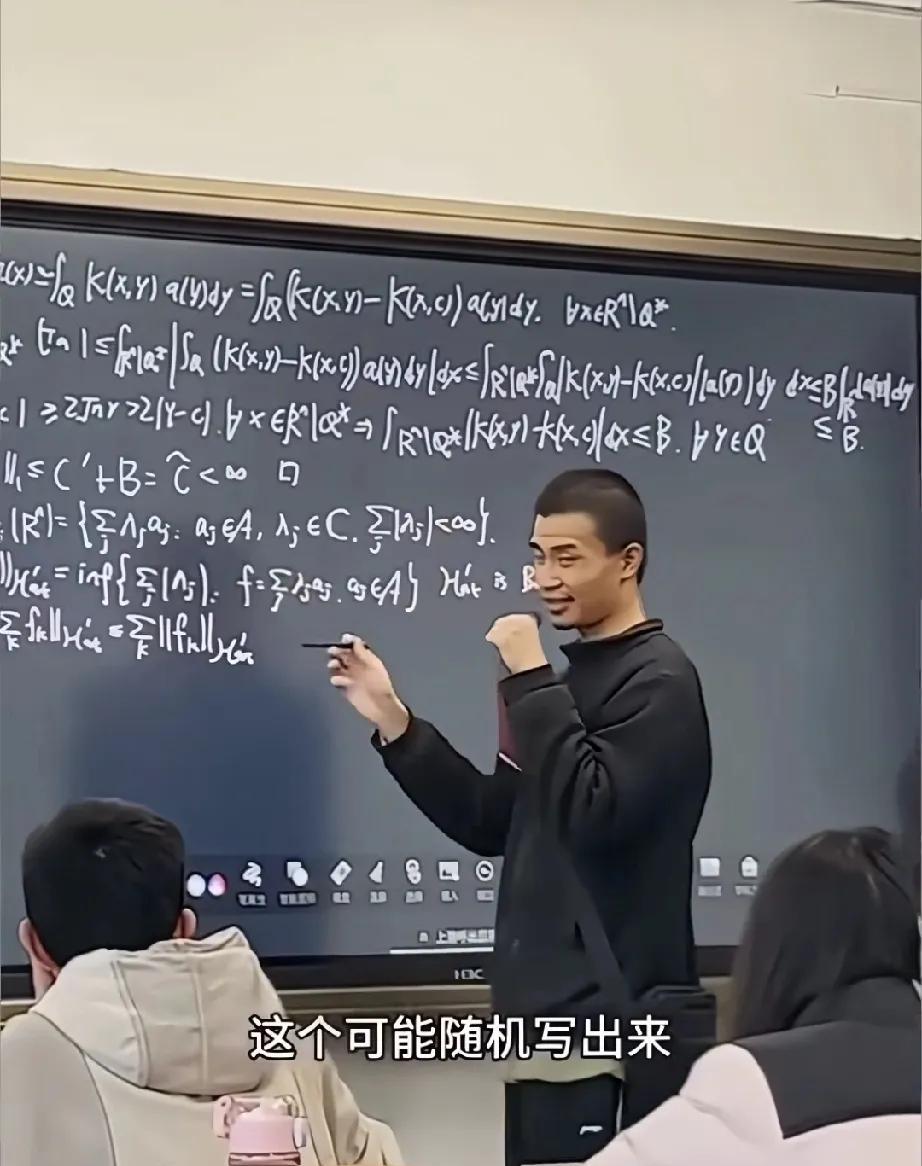 (x)=∫_Q K(x,y) a(y)dy = ∫_Q (K(x,y)-K(x,c)) a(y)dy. ∀x∈R^n\Q*.
|Ta| ≤ ∫_{R^n\Q*} |∫_Q (K(x,y)-K(x,c)) a(y)dy|dx ≤ ∫_{R^n\Q*} ∫_Q |K(x,y)-K(x,c)| |a(y)|dy dx ≤ B∫_R |a(y)|dy
c| ≥ 2√n r > 2|y-c|. ∀x∈R^n\Q* ⇒ ∫_{R^n\Q*} |K(x,y)-K(x,c)|dx ≤ B. ∀y∈Q ≤ B.
‖₁ ≤ C'+B = C̃ < ∞ □
(R^n) = {∑_j λ_j a_j: a_j∈A, λ_j∈C. ∑_j |λ_j| < ∞}.
‖_{H'at} = inf{∑_j |λ_j|: f=∑_j λ_j a_j. a_j∈A} H'at is B
∑_k f_k‖_{H'at} ≤ ∑_k ‖f_k‖_{H'at}
这个可能随机写出来